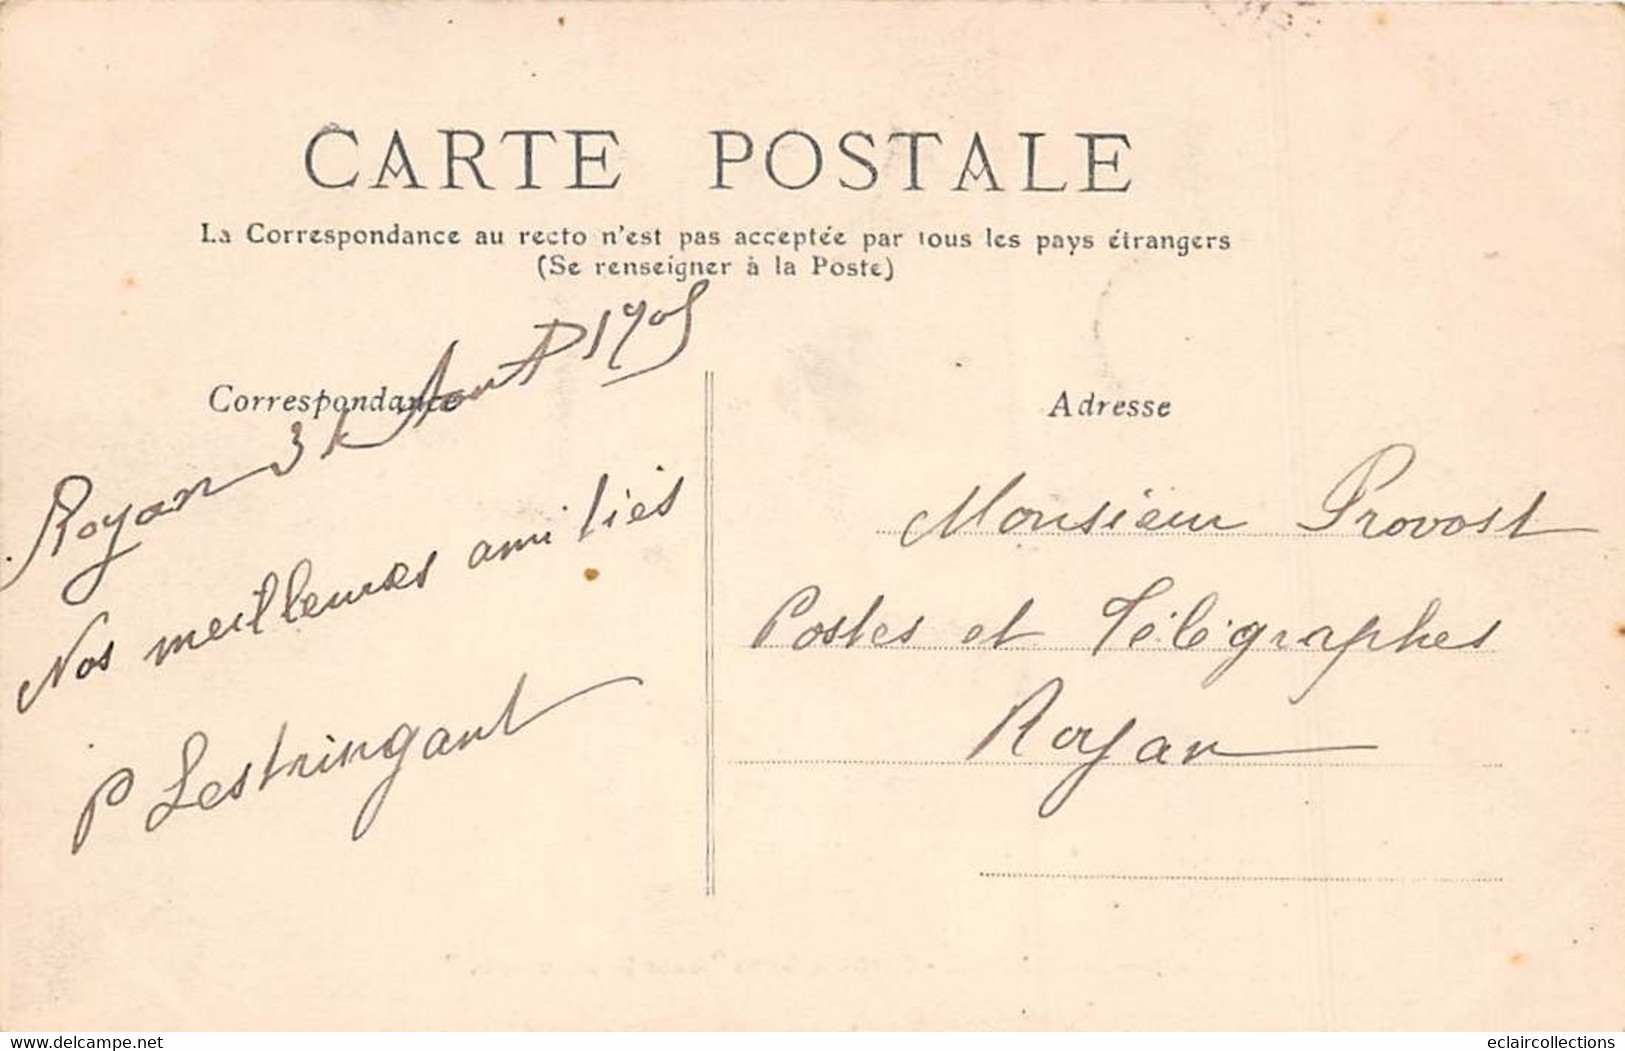 CARTE POSTALE
La Correspondance au recto n'est pas acceptée par tous les pays étrangers
(Se renseigner à la Poste)
Correspondance
Royan 31 Aout 1905
Nos meilleures amitiés
P Lestringant
Adresse
Monsieur Provost
Postes et Télégraphes
Royan
www.delcampe.net
eclaircollections